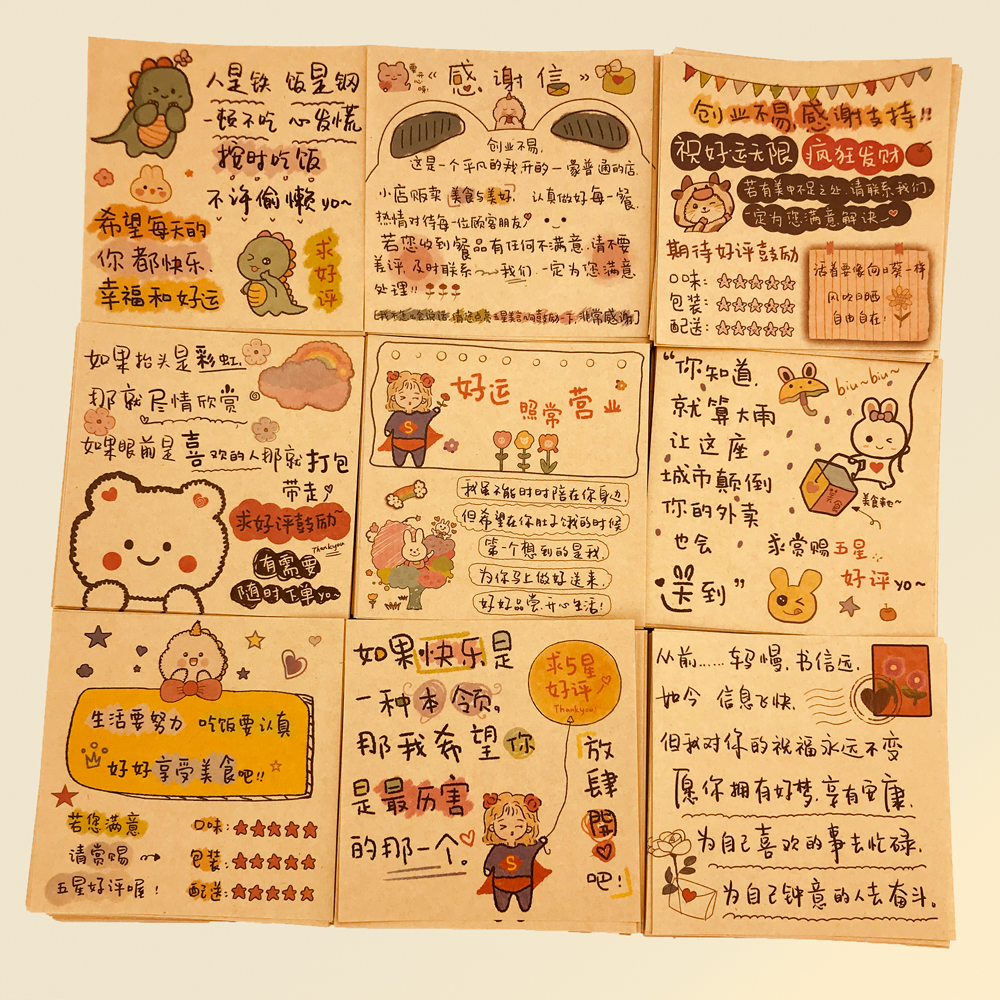 人是铁 饭是钢
一顿不吃 心发慌
按时吃饭
不许偷懒 yo~
希望每天的
你都快乐.
幸福和好运
求好评
《感谢信》
创业不易,
这是一个平凡的我,开的一家普通的店
小店贩卖 美食与美好, 认真做好每一餐,
热情对待每一位顾客朋友,
若您收到餐品有任何不满意,请不要
差评,及时联系~~我们,一定为您满意
处理!!
非常感谢】
创业不易,感谢支持!!
祝好运无限 疯狂发财
若有美中不足之处,请联系我们,
一定为您满意解决
期待好评鼓励
口味:
包装:
配送:
活着要像向日葵一样
风吹日晒
自由自在!
如果抬头是彩虹,
那就尽情欣赏
如果眼前是喜欢的人那就打包
带走
求好评鼓励~
Thankyou
有需要
随时下单yo~
好运 照常营业
我虽不能时时陪在你身边,
但希望在你肚子饿的时候
第一个想到的是我,
为你马上做好送来,
好好品尝,开心生活!
“你知道,
就算大雨
让这座
城市颠倒
你的外卖
也会
送到”
biu~biu~
美食
美食来也~
求赏赐五星
好评yo~
生活要努力 吃饭要认真
好好享受美食吧!!
若您满意
请赏赐
五星好评喔!
口味:
包装:
配送:
如果快乐是
一种本领。
那我希望你
是最厉害
的那一个。
求5星
好评
Thankyou!
S
「放肆開❤吧!」
从前……车马慢,书信远,
如今 信息飞快,
但我对你的祝福永远不变
愿你拥有好梦,享有安康,
为自己喜欢的事去忙碌,
为自己钟意的人去奋斗。